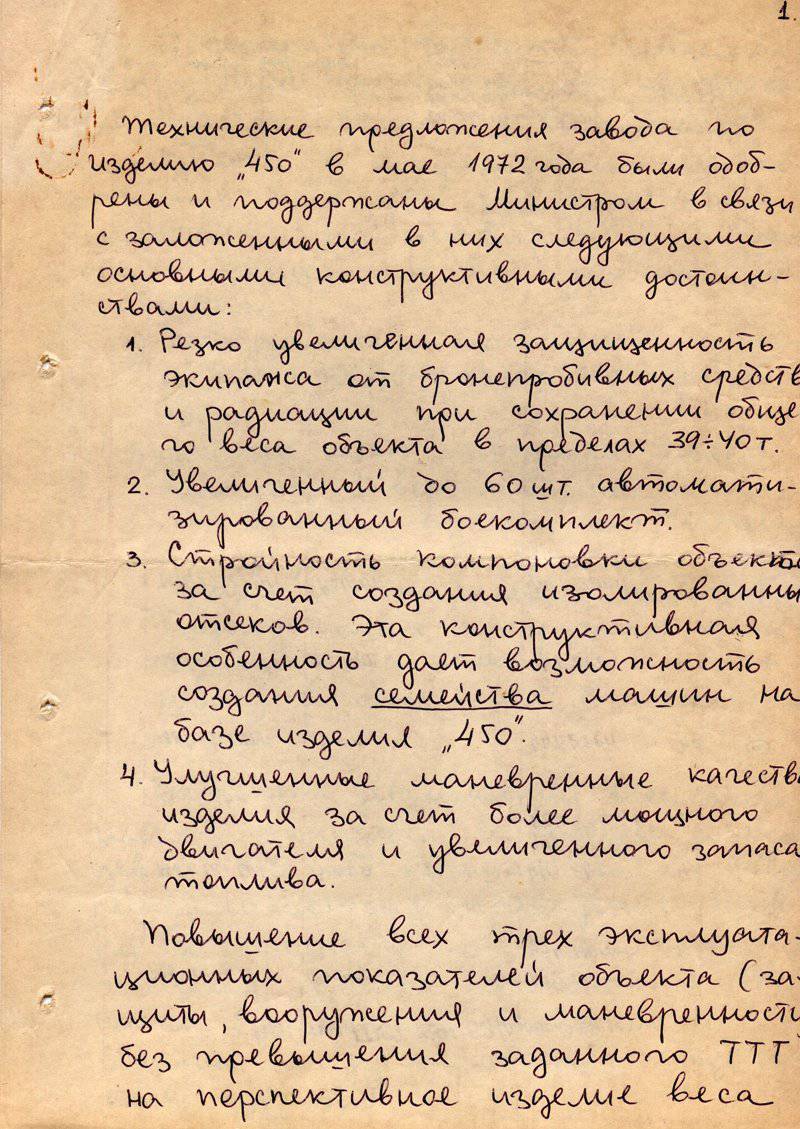 1.
Технические предложения завода по
изделию „450“ в мае 1972 года были одоб-
рены и поддержаны Министром в связи
с заложенными в них следующими
основными конструктивными достоин-
ствами:
1. Резко увеличенная защищенность
экипажа от бронепробивных средств
и радиации при сохранении обще-
го веса объекта в пределах 39÷40т.
2. Увеличенный до 60 шт. автомати-
зированный боекомплект.
3. Стройность компоновки объекта
за счет создания изолированны
отсеков. Эта конструктивная
особенность дает возможность
создания семейства машин на
базе изделия „450“.
4. Улучшенные маневренные качества
изделия за счет более мощного
двигателя и увеличенного запаса
топлива.
Повышение всех трех эксплуата-
ционных показателей объекта (за-
щиты, вооружения и маневренности
без превышения заданного ТТТ
на перспективное изделие веса